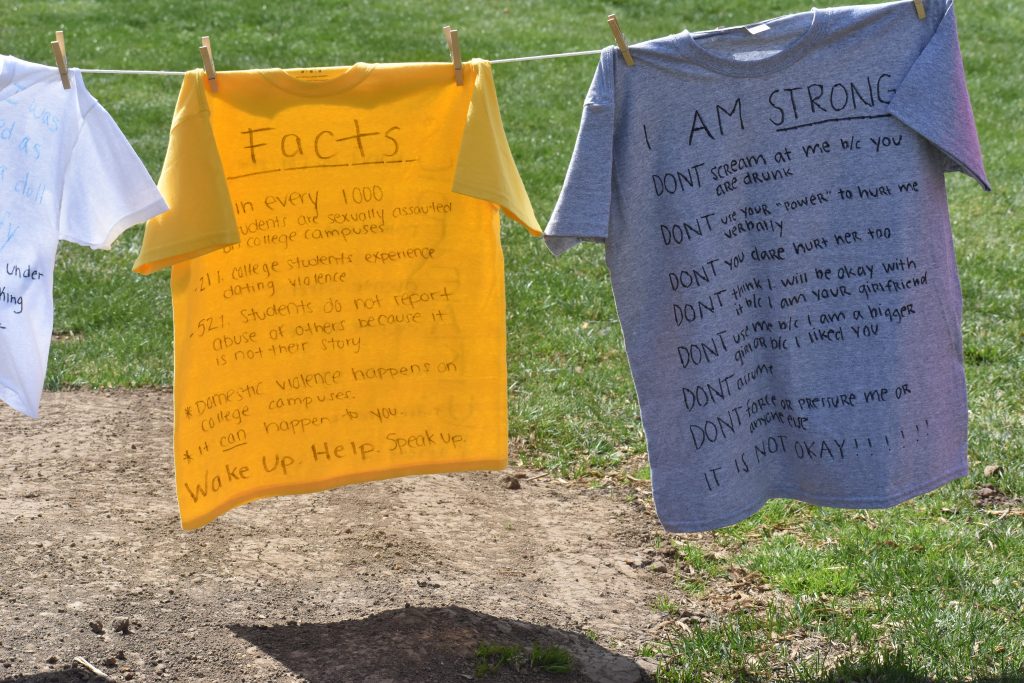 I was
as
a doll
under
Facts
in every 1000
students are sexually assaulted
on college campuses
.21%. college students experience
dating violence
.52%. Students do not report
abuse of others because it
is not their story
*Domestic violence happens on
college campuses.
* it can happen to you.
Wake Up. Help. Speak Up.
I AM STRONG
DONT scream at me b/c you
are drunk
DONT use your "power" to hurt me
verbally
DONT you dare hurt her too
DONT think I will be okay with
it b/c I am your girlfriend
DONT use me b/c I am a bigger
girl or b/c I liked you
DONT
DONT force or pressure me or
anyone else
IT IS NOT OKAY!!!!!!